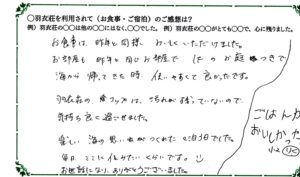 〇羽衣荘を利用されて(お食事・ご宿泊)のご感想は?
例)羽衣荘の〇〇は他の〇〇にはなく、〇〇でした。 例)羽衣荘の〇〇がとても〇〇で、心に残りました。
お食事は、昨年と同様、おいしくいただけました。
お部屋も昨年と同じお部屋で、1Fのお庭つきで
海から帰ってきた時、使いやすくて良かったです。
羽衣荘の
気持ち良く過ごせました。
楽しい海の思い出がつくれた2泊でした。
毎日ここに住みたいくらいです。
お世話になり、ありがとうございました。
ごはんが
おいしかった